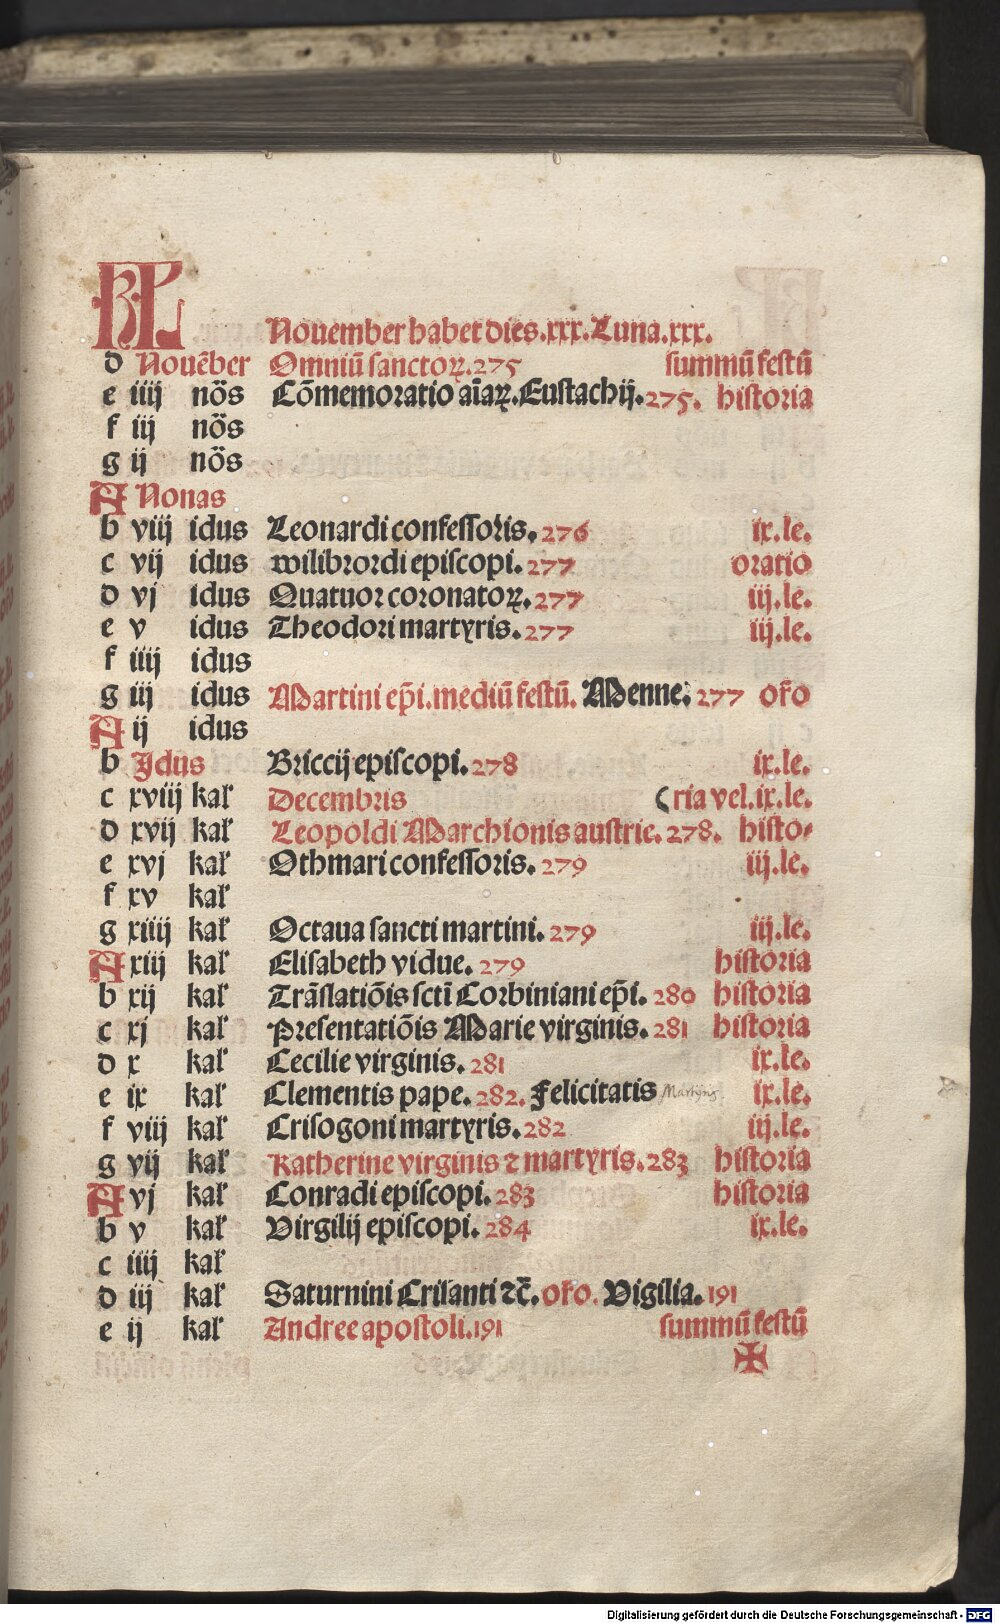 KL
Nouember habet dies.xxx.Luna.xxx.
d Nouẽber Omniũ sanctoꝝ.275 summũ festũ
e iiij nõs Cõmemoratio aĩaꝝ.Eustachij.275. historia
f iij nõs
g ij nõs
A Nonas
b viij idus Leonardi confessoris.276 ix.le.
c vij idus wilibrordi episcopi.277 oratio
d vj idus Quatuor coronatoꝝ.277 iij.le.
e v idus Theodori martyris.277 iij.le.
f iiij idus
g iij idus Martini ep̃i.mediũ festũ. Menne.277 oro
A ij idus
b Jdus Briccij episcopi.278 ix.le.
c xviij kal Decembris (ria vel.ix.le.
d xvij kal Leopoldi Marchionis austrie.278. histo-
e xvj kal Othmari confessoris.279 iij.le.
f xv kal
g xiiij kal Octaua sancti martini.279 iij.le.
A xiij kal Elisabeth vidue.279 historia
b xij kal Trãslatiõis sctĩ Corbiniani ep̃i.280 historia
c xj kal Presentatiõis Marie virginis.281 historia
d x kal Cecilie virginis.281 ix.le.
e ix kal Clementis pape.282. Felicitatis Martyris. ix.le.
f viij kal Crisogoni martyris.282 iij.le.
g vij kal Katherine virginis ⁊ martyris.283 historia
A vj kal Conradi episcopi.283 historia
b v kal Virgilij episcopi.284 ix.le.
c iiij kal
d iij kal Saturnini Crisanti ⁊c̃.oro. Vigilia.191
e ij kal Andree apostoli.191 summũ festũ
✠
Digitalisierung gefördert durch die Deutsche Forschungsgemeinschaft - DFG